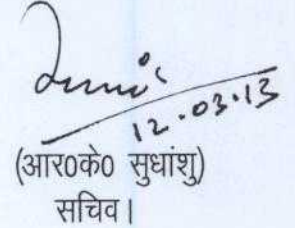 12.03.13
(आर0के0 सुधांशु)
सचिव।